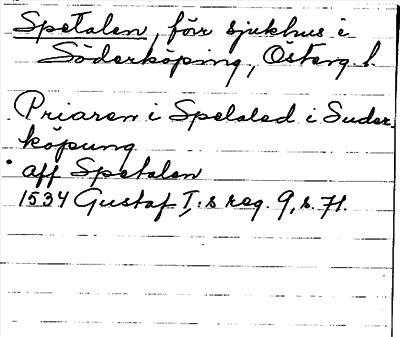 Spetalen, förr sjukhus i
Söderköping, Österg. l.
Priaren i Spetaled i Suder-
köpung
aff Spetalen
1534 Gustaf I:s reg. 9, s. 71.